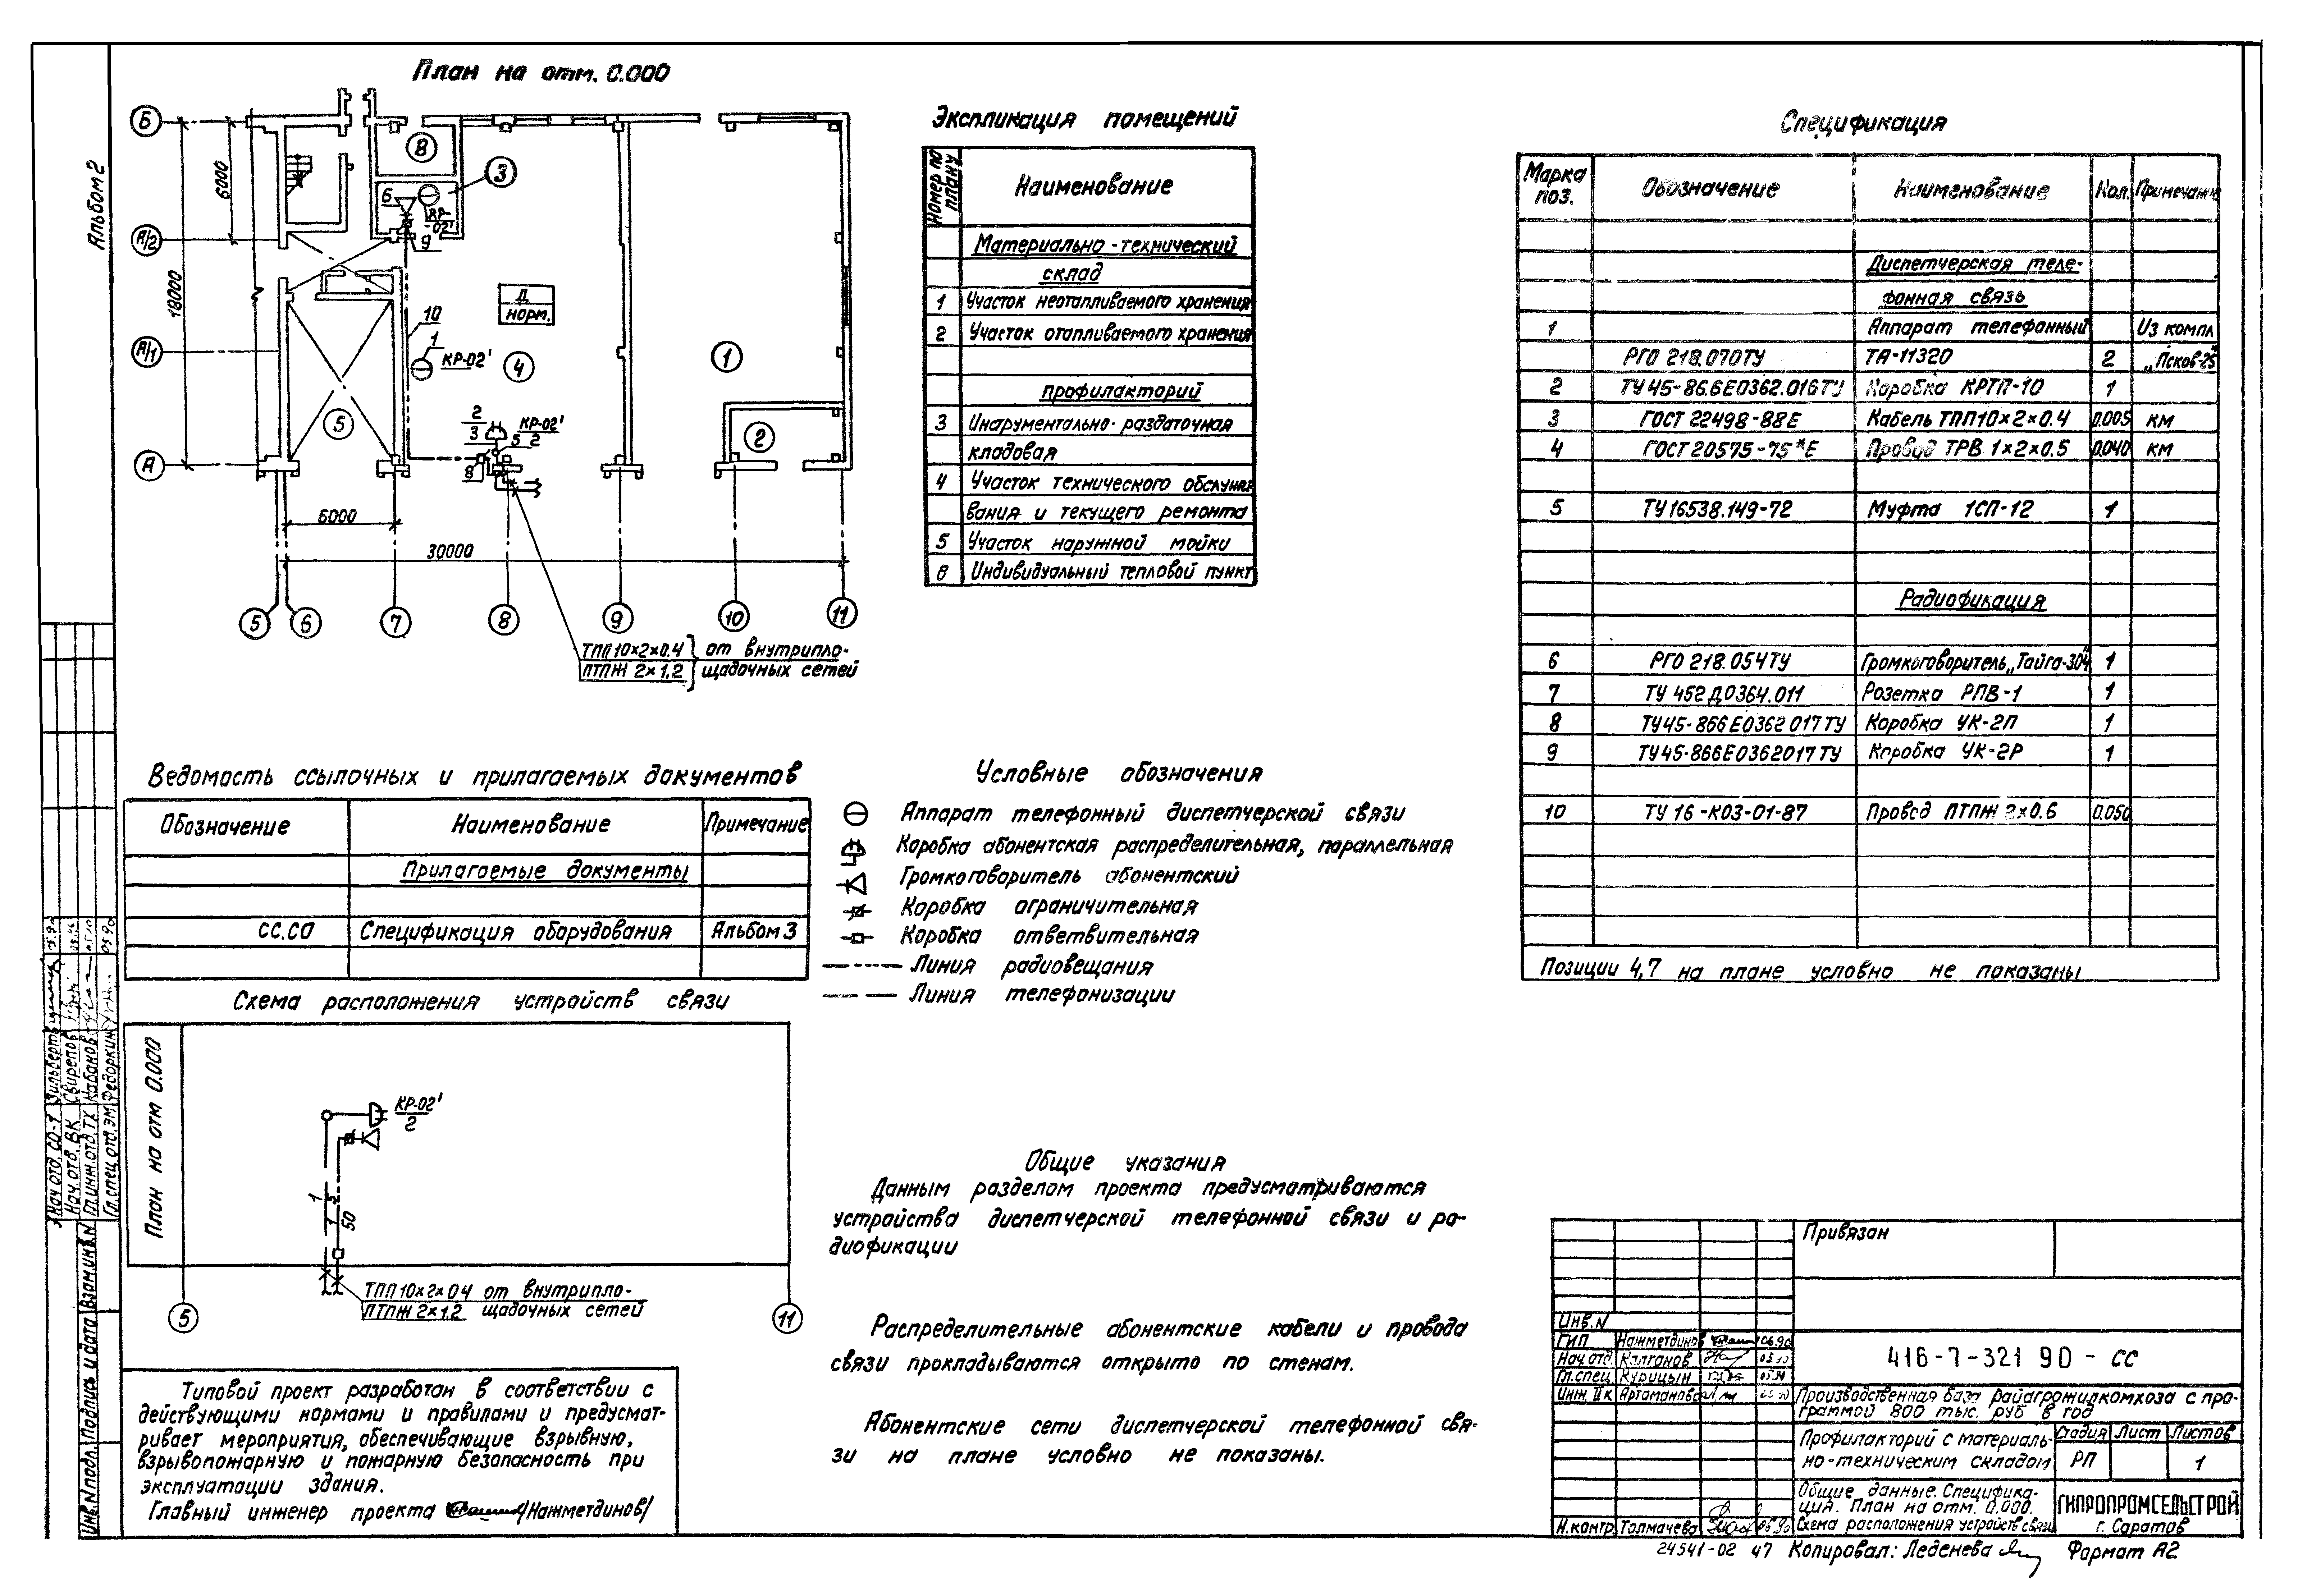 Альбом 2
План на отм. 0.000
Б
А/2
А/1
А
6000
18000
8
3
6
КР-
02'
9
10
1
КР-02'
Д
норм.
4
1
5
2
3
КР-02'
5 2
8
2
6000
30000
5 6 7 8 9 10 11
ТПП 10×2×0.4 от внутрипло-
ПТПЖ 2×1,2 щадочных сетей
Экспликация помещений
Номер по плану Наименование
Материально-технический
склад
1 Участок неотапливаемого хранения
2 Участок отапливаемого хранения
профилакторий
3 Инструментально-раздаточная
кладовая
4 Участок технического обслужи
вания и текущего ремонта
5 Участок наружной мойки
6 Индивидуальный тепловой пункт
Спецификация
Марка поз. Обозначение Наименование Кол. Примечание
Диспетчерская теле-
фонная связь
1 Аппарат телефонный Из компл
РГО 218.070ТУ ТА-11320 2 „Псков-25"
2 ТУ45-86.6Е0362.016ТУ Коробка КРТП-10 1
3 ГОСТ 22498-88Е Кабель ТПП10×2×0.4 0.005 км
4 ГОСТ 20575-75*Е Провод ТРВ 1×2×0.5 0.040 км
5 ТУ16538.149-72 Муфта 1СП-12 1
Радиофикация
6 РГО 218.054ТУ Громкоговоритель „Тайга-304" 1
7 ТУ 452Д0364.011 Розетка РПВ-1 1
8 ТУ45-866Е0362017ТУ Коробка УК-2П 1
9 ТУ45-866Е0362017ТУ Коробка УК-2Р 1
10 ТУ 16-К03-01-87 Провод ПТПЖ 2×0.6 0.050
Позиции 4,7 на плане условно не показаны
Ведомость ссылочных и прилагаемых документов
Обозначение Наименование Примечание
Прилагаемые документы
СС.СО Спецификация оборудования Альбом 3
Условные обозначения
Аппарат телефонный диспетчерской связи
Коробка абонентская распределительная, параллельная
Громкоговоритель абонентский
Коробка ограничительная
Коробка ответвительная
Линия радиовещания
Линия телефонизации
Схема расположения устройств связи
План на отм 0.000
КР-02'
2
1
1
50
ТПП10×2×04 от внутрипло-
ПТПЖ 2×1.2 щадочных сетей
5 11
Общие указания
Данным разделом проекта предусматриваются
устройства диспетчерской телефонной связи и ра-
диофикации
Распределительные абонентские кабели и провода
связи прокладываются открыто по стенам.
Абонентские сети диспетчерской телефонной свя-
зи на плане условно не показаны.
Типовой проект разработан в соответствии с
действующими нормами и правилами и предусмат-
ривает мероприятия, обеспечивающие взрывную,
взрывопожарную и пожарную безопасность при
эксплуатации здания.
Главный инженер проекта /Нажметдинов/
Нач.отд. СО-1 Зильберто
Нач.отд. ВК Свирепов
Гл.инж.отд.ТХ Кабанов
Гл.спец.отд.ЭМ Федоркин 05.90
Инв.N подл. Подпись и дата Взам.инв.N
Привязан
Инв.N
ГИП Нажметдинов 06.90
Нач.отд. Калганов 05.90
Гл.спец. Курицын 05.90
Инж. II к Артаманова 05.90
Н.контр. Толмачева 06.90
416-7-321 90 - СС
Производственная база райагрожилкомхоза с про-
граммой 800 тыс. руб в год
Профилакторий с материаль-
но-техническим складом
Стадия Лист Листов
РП 1
Общие данные. Специфика-
ция. План на отм. 0.000.
Схема расположения устройств связи
ГИПРОПРОМСЕЛЬСТРОЙ
г. Саратов
24541-02 47 Копировал: Леденева Формат А2